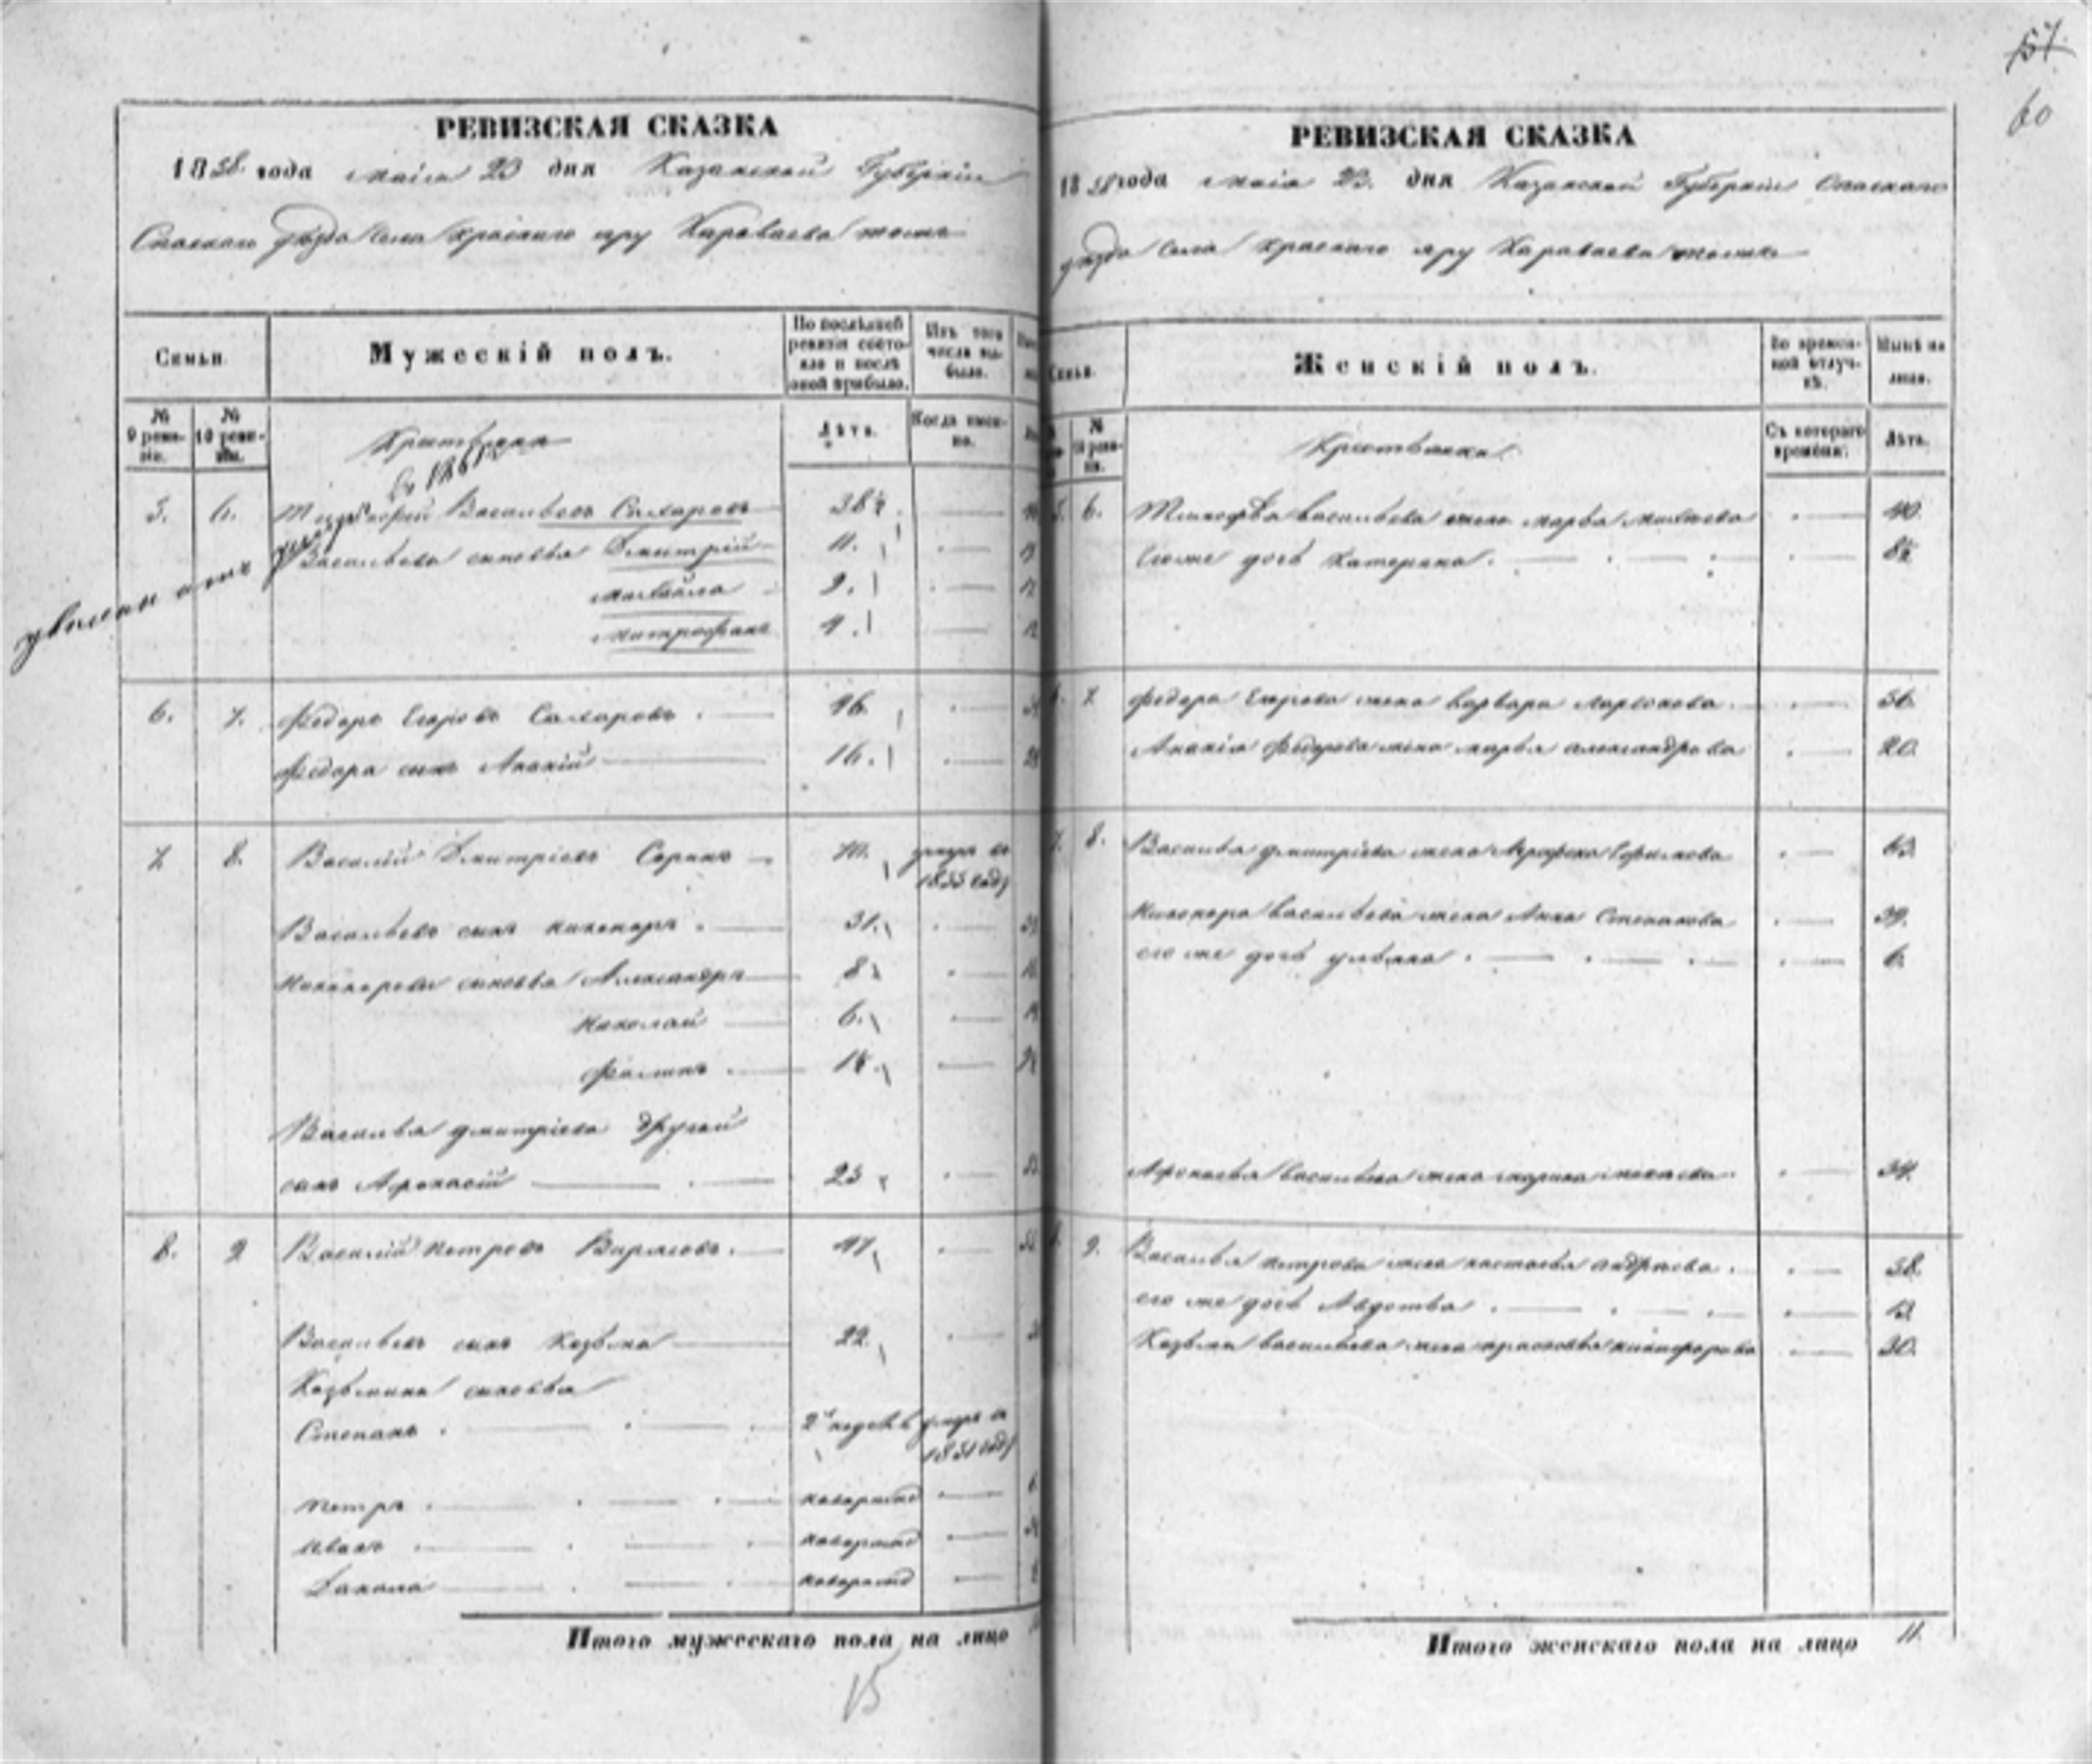 РЕВИЗСКАЯ СКАЗКА
1858 года маія 23 дня Казанской Губерніи
Спаскаго уѣзда села Краснаго яру Караваева тожъ
Семьи.
Мужескій полъ.
По послѣдней ревизіи состояло и послѣ оной прибыло.
Изъ того числа выбыло.
№ 9 ревизіи.
№ 10 ревизіи.
Крестьяне
Лѣта.
Когда именно.
въ 1861
5. 6. Тимофей Васильевъ Сахаровъ 38½
Васильева сыновья Дмитрій 11.
Михайла 9.
Митрофанъ 4.
6. 7. Федоръ Егоровъ Сахаровъ 46.
Федора сынъ Ананій 16.
7. 8. Василій Дмитріевъ Соринъ 70. умеръ въ
1855 году
Васильевъ сынъ Никоноръ 31.
Никонорова сыновья Александръ 8
Николай 6.
Филипъ
Василья Дмитріева другой
сынъ Афонасій 25
8. 9 Василій Петровъ 47
Васильевъ сынъ Козьма 22.
Козьмина сыновья
Степанъ 2 недѣль умеръ въ
1851 году
Петръ новорожд
Иванъ новорожд
Данила новорожд
Итого мужескаго пола на лицо
15
57
60
РЕВИЗСКАЯ СКАЗКА
1858 года маія 23. дня Казанской Губерніи Спаскаго
уѣзда села Краснаго яру Караваева тожъ
Семьи.
Женскій полъ.
Во временной отлучкѣ.
Нынѣ на лицо.
Крестьянки
Съ котораго времени.
Лѣта.
5. 6. Тимофѣя Васильева жена Марфа 40.
Его же дочь Катерина. 8½
6. 7. Федора Егорова жена Варвара Ларіонова 56.
Ананія Федорова жена Марья Александрова 20.
7. 8. Василья Дмитріева жена 63.
Никонора Васильева жена Анна Степанова 39.
его же дочь Ульяна 6.
Афонасья Васильева жена Марина 34.
8. 9. Василья Петрова жена Настасья Андреева 58.
его же дочь Авдотья 13.
Козьмы Васильева жена Прасковья Никифорова 30.
Итого женскаго пола на лицо 11.